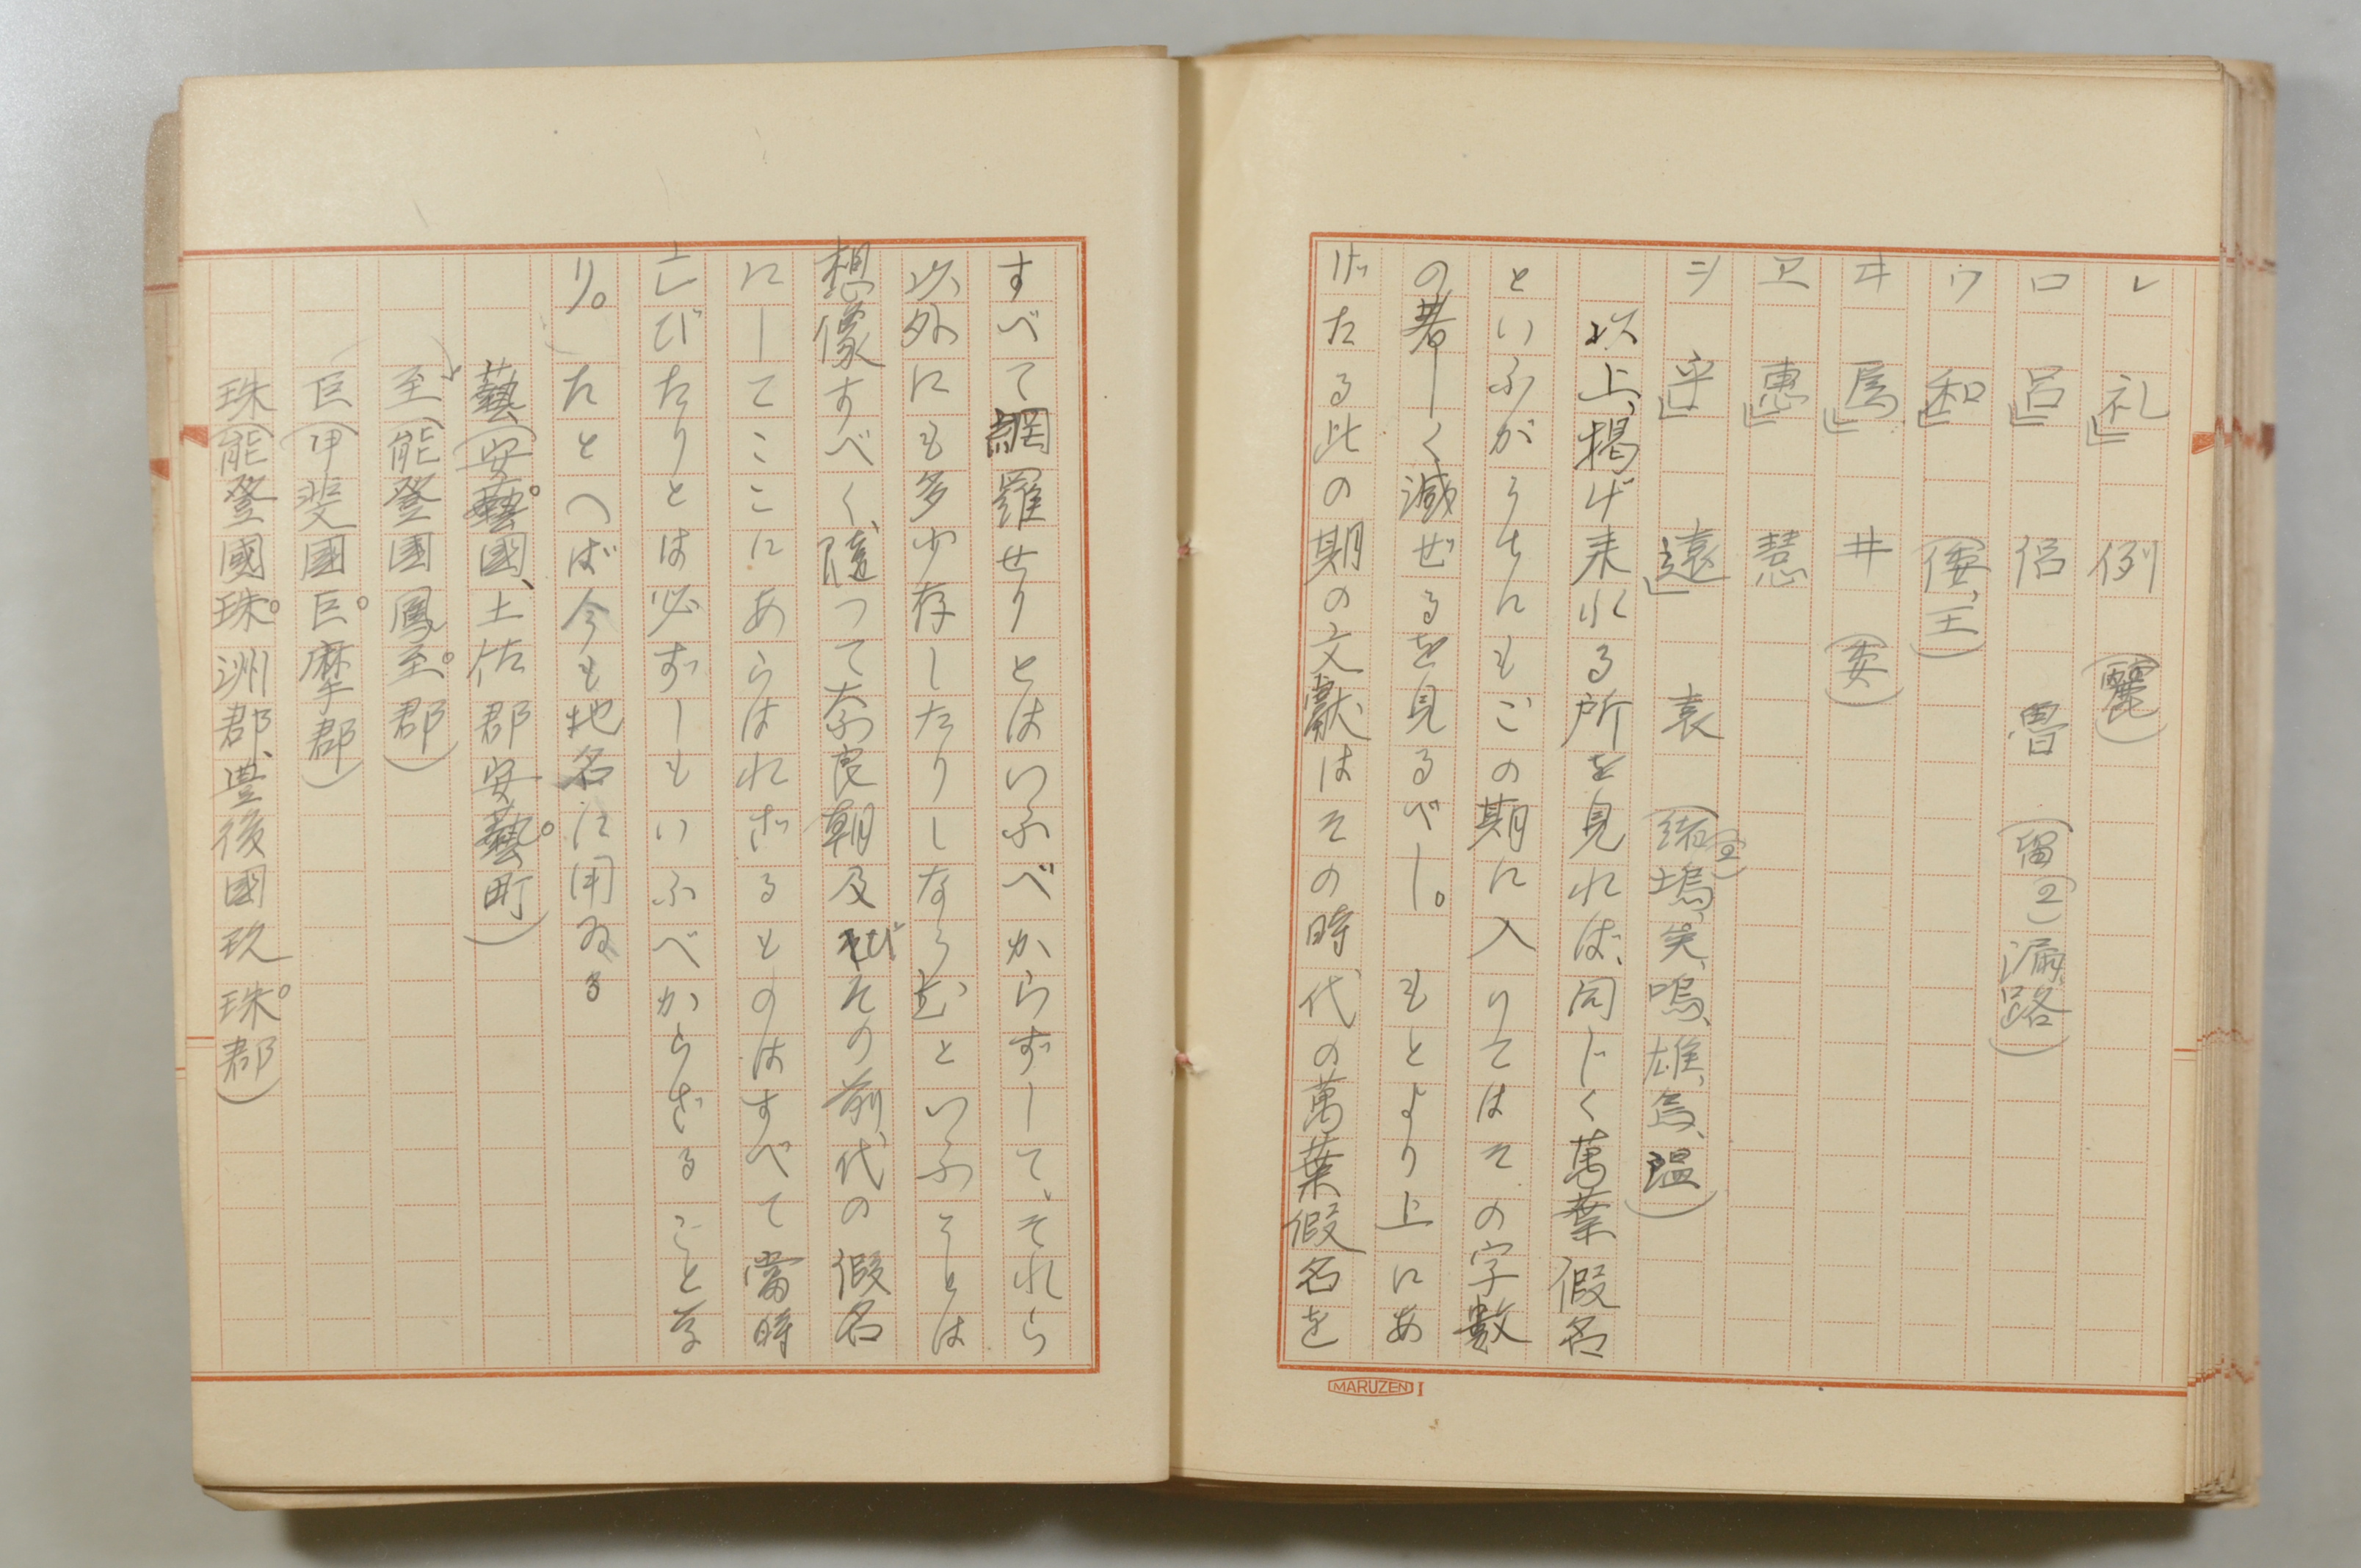 レ 礼」 例 (麗)
ロ 呂」 侶 魯 (留(2)漏、路)
ワ 和」 (倭、王)
ヰ 爲」 井 (委)
ヱ 惠」 慧
ヲ 乎」 遠」 袁 (緒(2)塢、矣、嗚、雄、烏、瑥)
以上、掲げ来れる所を見れば、同じく萬葉假名
といふがうちにもこの期に入りてはその字數
の著しく減ぜるを見るべし。もとより上にあ
げたる此の期の文獻はその時代の萬葉假名を
MARUZEN I
すべて網羅せりとはいふべからずして、それら
以外にも多少存したりしならむといふことは
想像すべく、隨つて奈良朝及びその前代の假名
にしてここにあらはれざるものはすべて當時
亡びたりとは必ずしもいふべからざること亦
り。たとへば今も地名に用ゐる
藝(安藝國、土佐郡安藝町)
至(能登國鳳至郡)
巨(甲斐國巨摩郡)
珠(能登國珠洲郡、豊後國玖珠郡)